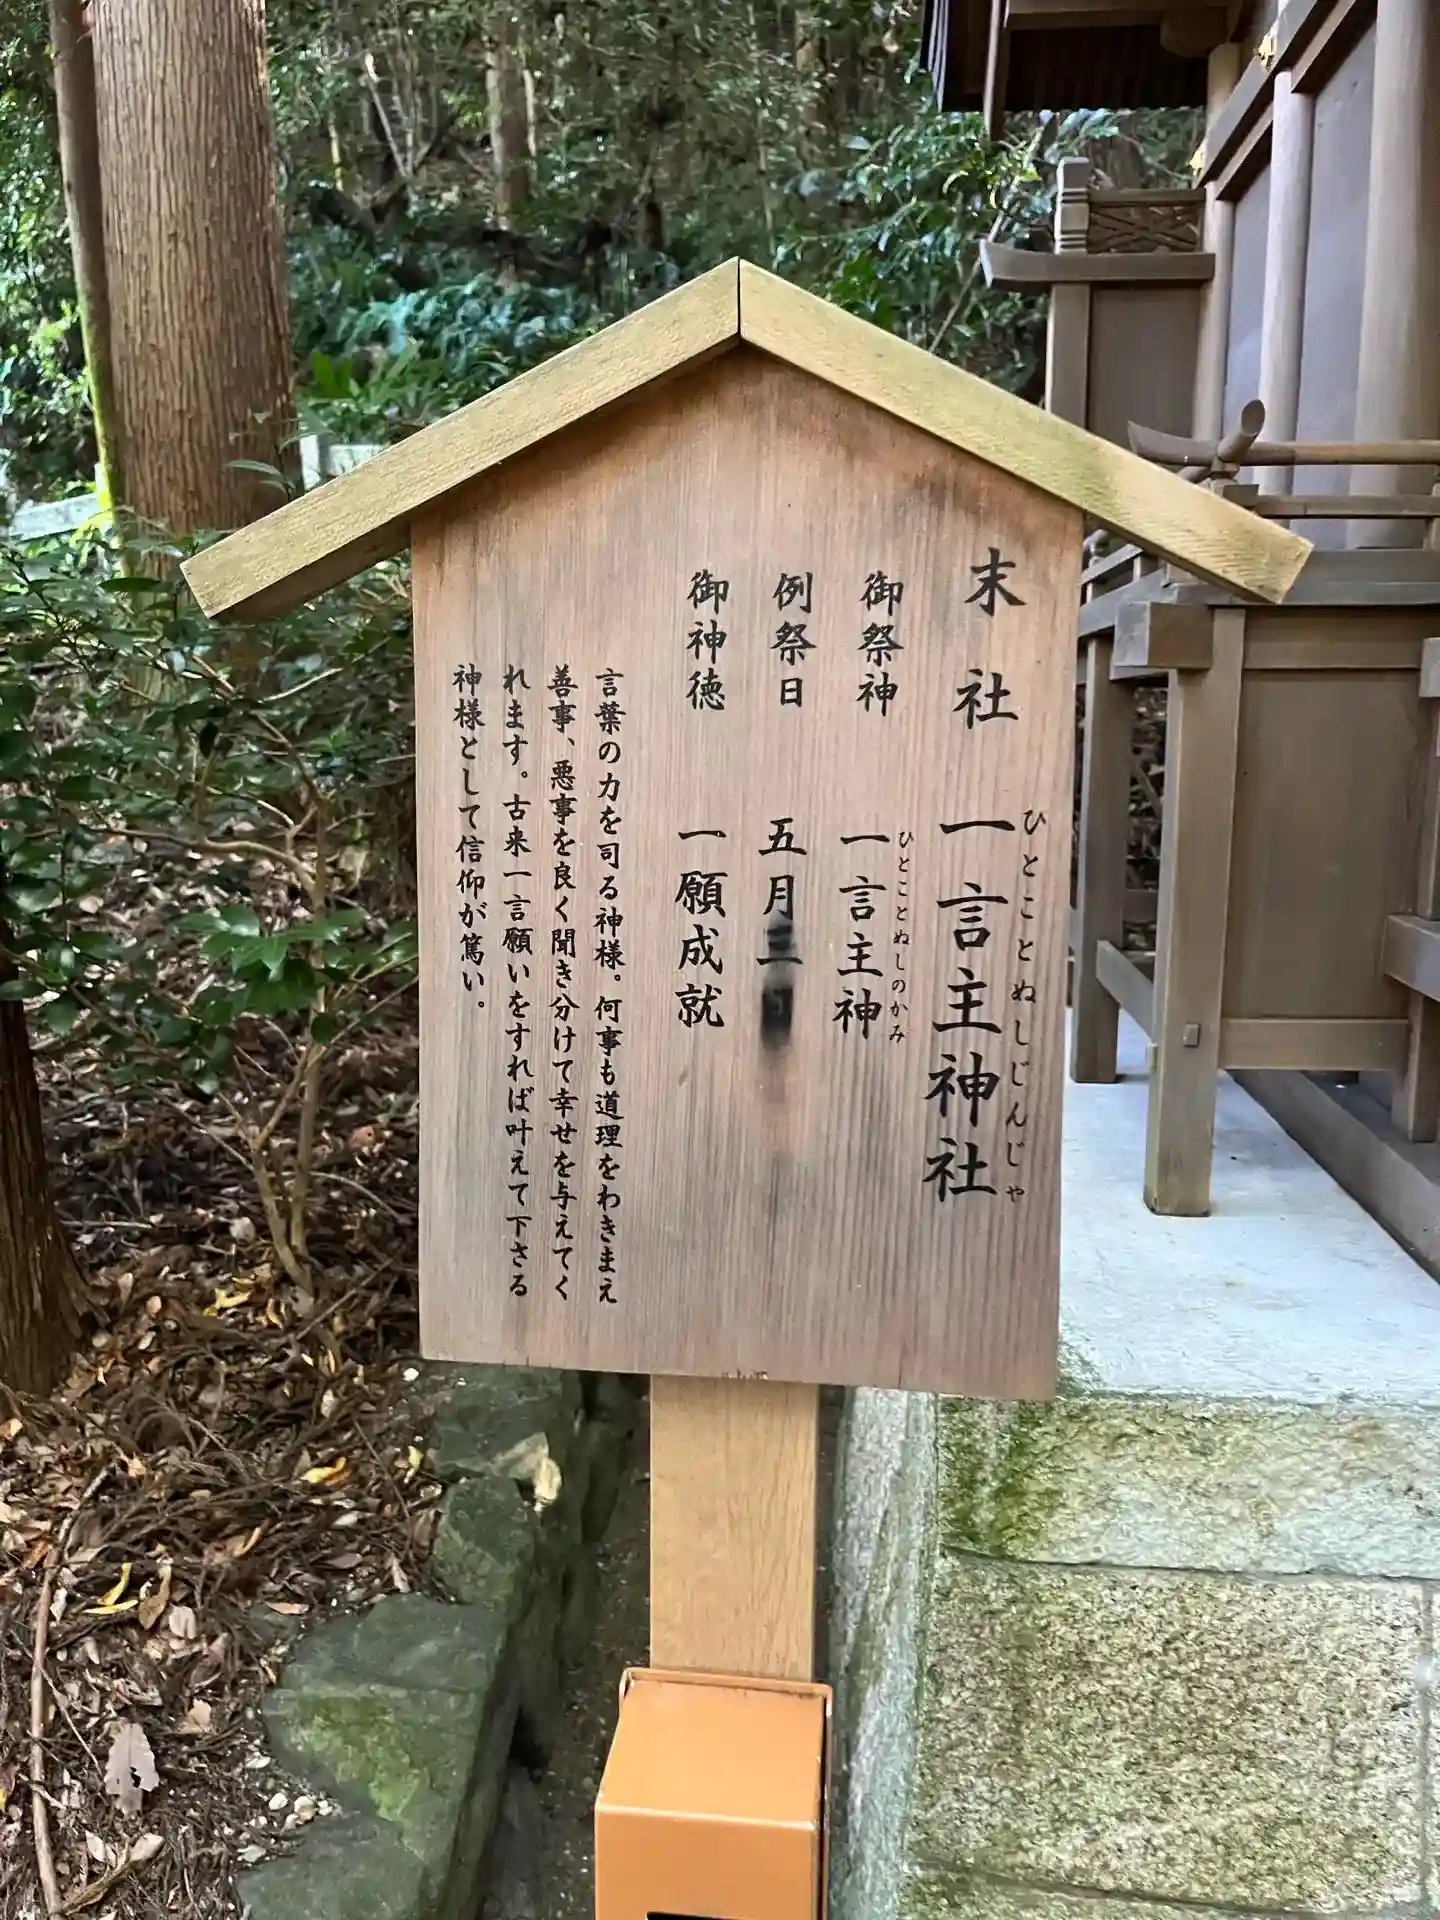 末社 一言主神社
ひとことぬしじんじゃ
御祭神 一言主神
ひとことぬしのかみ
例祭日 五月三日
御神徳 一願成就
言葉の力を司る神様。何事も道理をわきまえ
善事、悪事を良く聞き分けて幸せを与えてく
れます。古来一言願いをすれば叶えて下さる
神様として信仰が篤い。